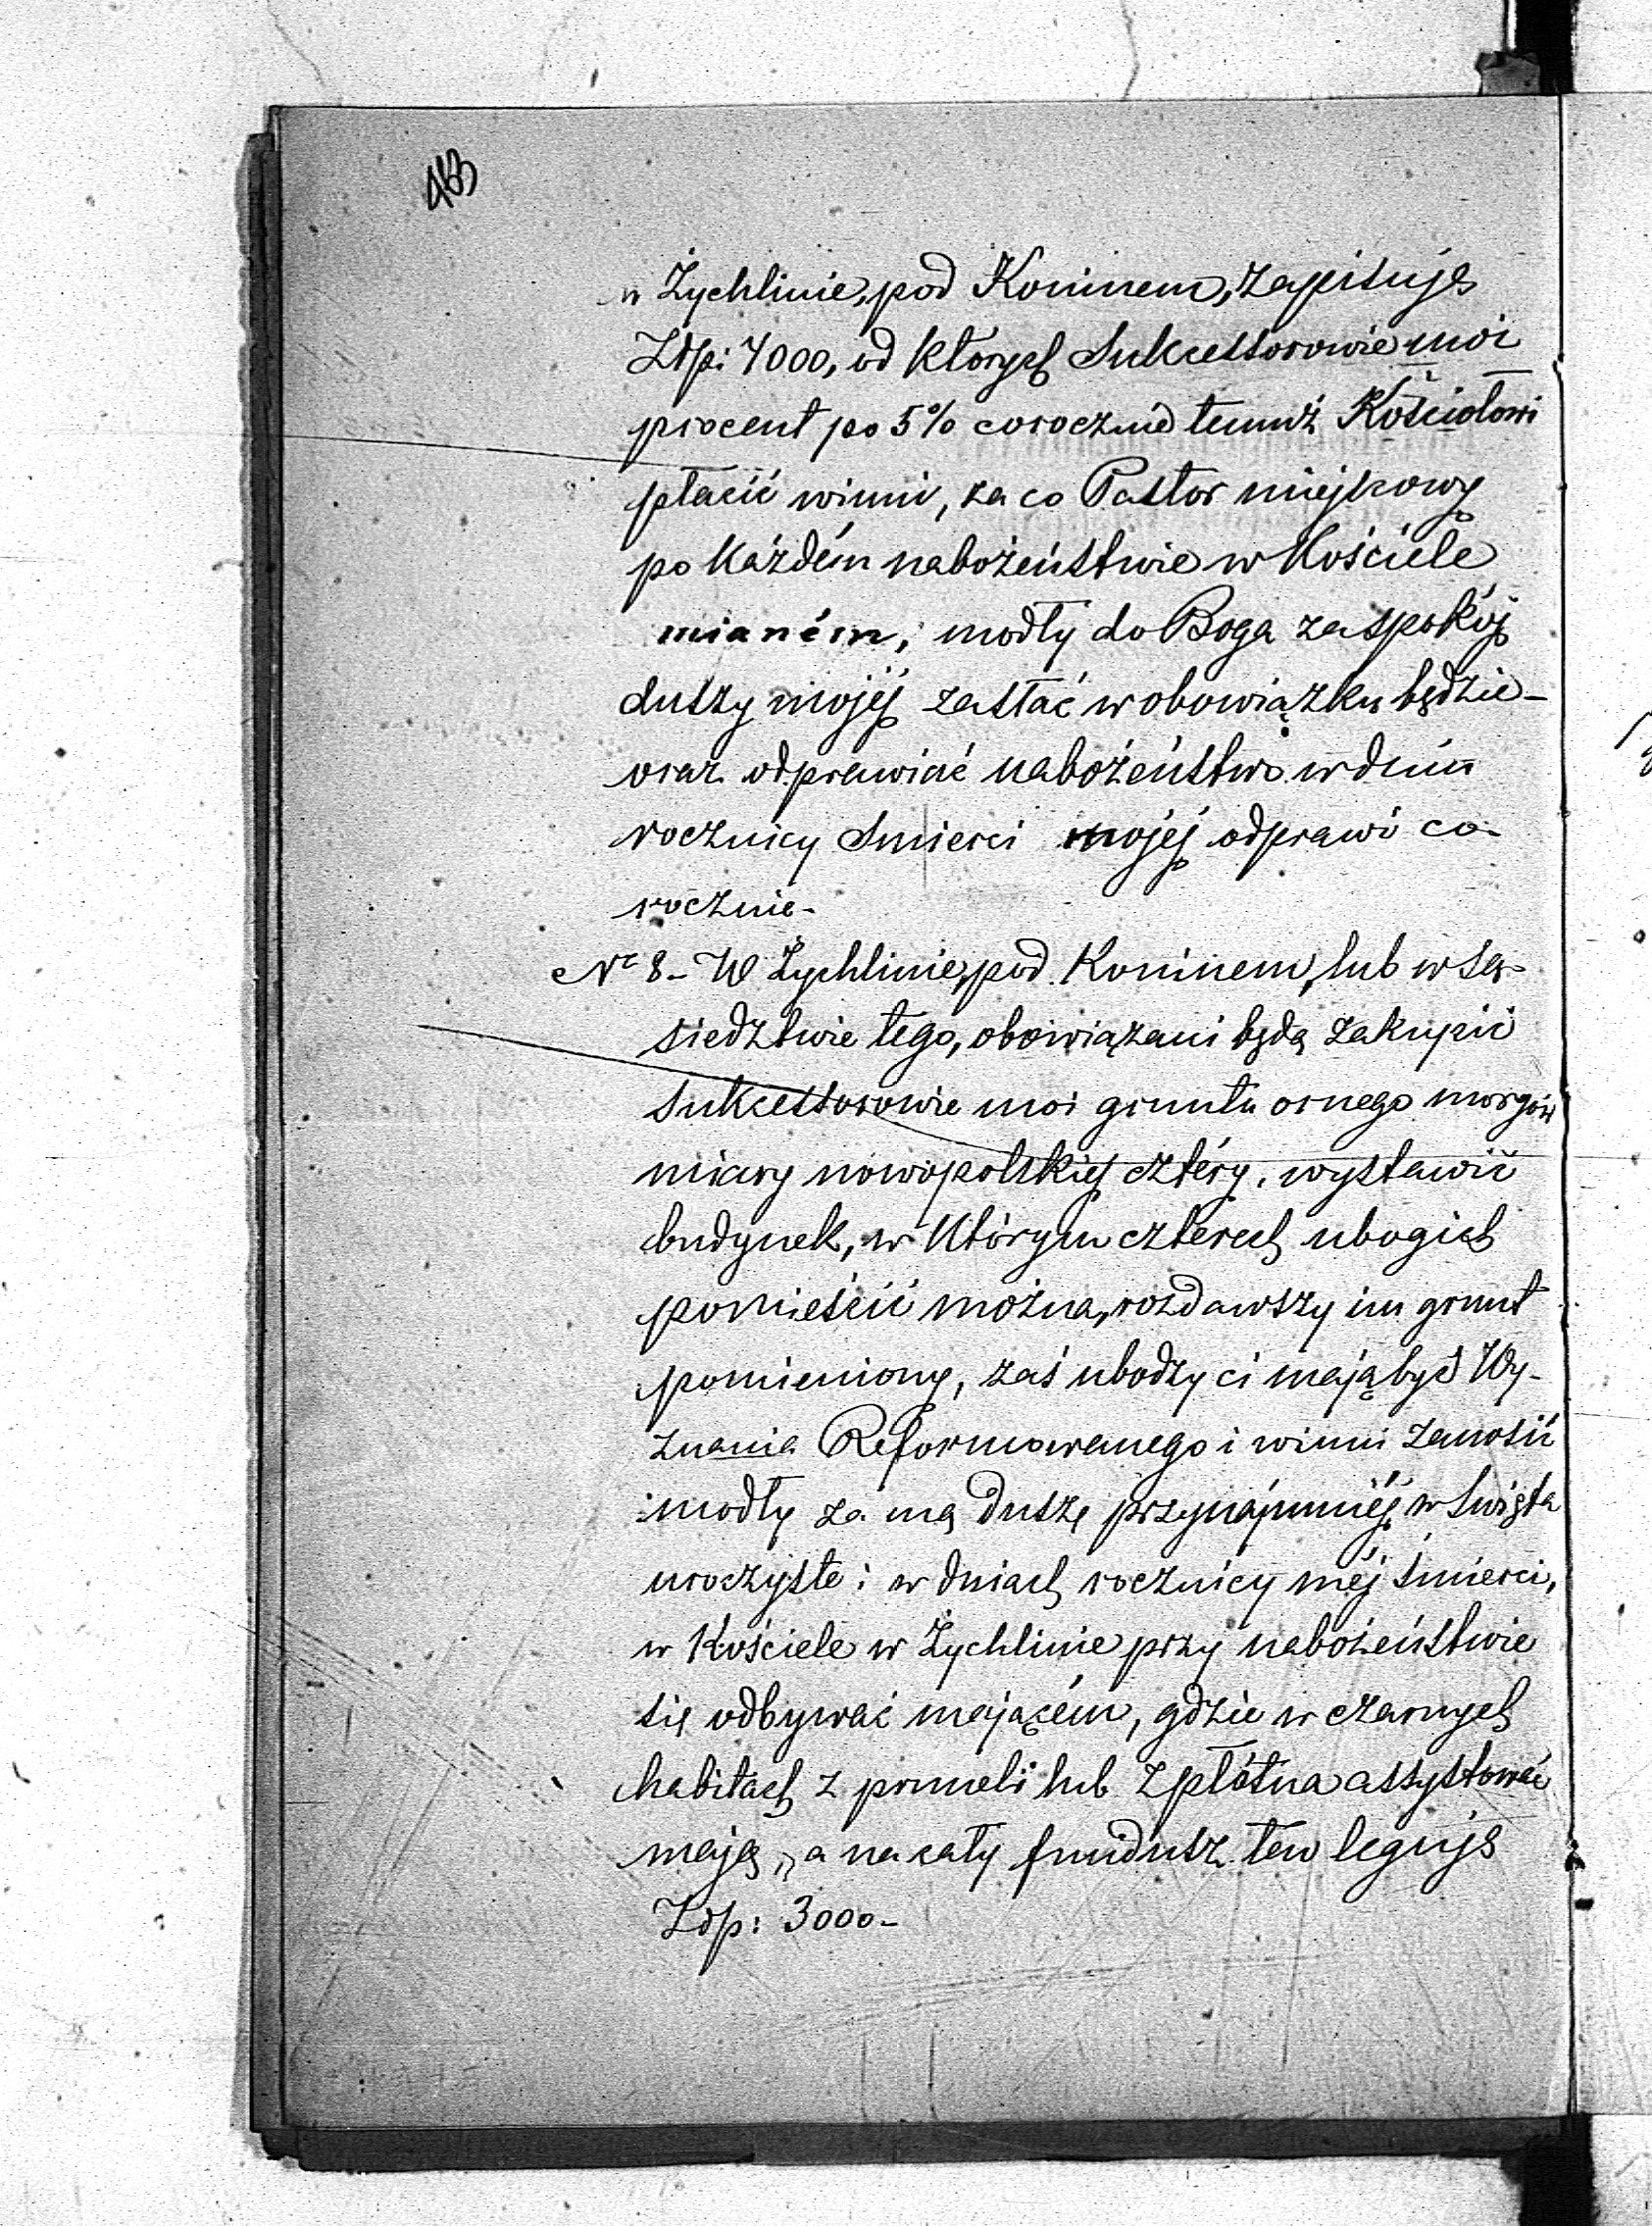 w Żychlinie, pod Koninem, zapisuję
Złp: 4000, od których Sukcessorowie moi
procent po 5% corocznie temuż Kościołowi
płacić winni, za co Pastor miejscowy
po każdém nabożeństwie w Kościele
mianém, modły do Boga za spokój
duszy mojéj zasłać w obowiązku będzie –
oraz odprawiać nabożeństwo w dniu
rocznicy śmierci mojéj odprawi co-
rocznie –
Nr 8 – W Żychlinie, pod Koninem, lub w są-
siedztwie tego, obowiązani będą zakupić
Sukcessorowie moi gruntu ornego morgów
miary nowopolskiéj cztéry, wystawić
budynek, w którym czterech ubogich
pomieścić można, rozdawszy im grunt
pomieniony, zaś ubodzy ci mają być Wy-
znania Reformowanego i winni zanosić
modły za mą duszę przynájmniéj w Święta
uroczyste i w dniach rocznicy méj śmierci,
w Kościele w Żychlinie przy nabożeństwie
się odbywać mającém, gdzie w czarnych
habitach z pruneli lub z płótna assystować
mają, a na cały fundusz ten leguję
Złp: 3000 –